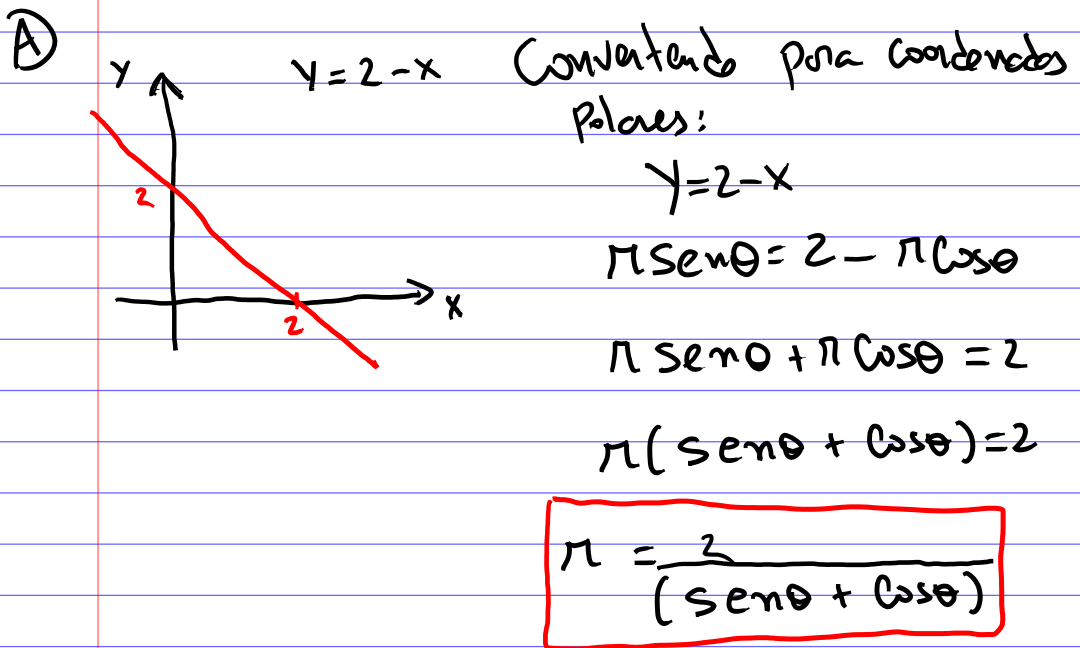 A
y
y = 2 - x
2
2
x
Convertendo para coordenadas
Polares:
y = 2 - x
r senθ = 2 - r cosθ
r senθ + r cosθ = 2
r( senθ + cosθ ) = 2
r = 2
( senθ + cosθ )